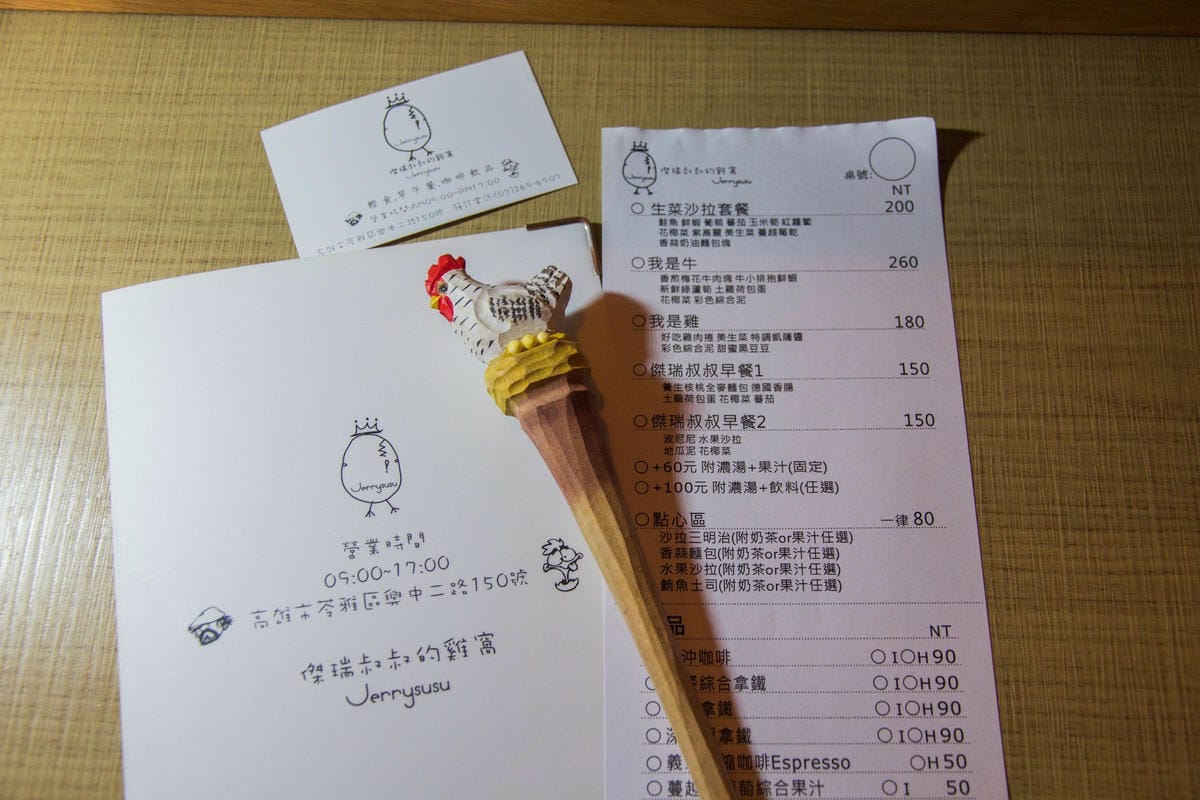 Jerrysusu
傑瑞叔叔的雞窩
Jerrysusu
輕食.早午餐.咖啡飲品
營業時間:AM09:00~PM17:00
預訂電話:(07)265-6507
二路150號
Jerrysusu
營業時間
09:00~17:00
高雄市苓雅區興中二路150號
傑瑞叔叔的雞窩
Jerrysusu
傑瑞叔叔的雞窩
Jerrysusu
桌號:
NT
生菜沙拉套餐 200
鮭魚 鮮蝦 葡萄 蕃茄 玉米筍 紅蘿蔔
花椰菜 紫高麗 美生菜 蔓越莓乾
香蒜奶油麵包塊
我是牛 260
香煎梅花牛肉塊 牛小排抱鮮蝦
新鮮綠蘆筍 土雞荷包蛋
花椰菜 彩色綜合泥
我是雞 180
好吃雞肉捲 美生菜 特調凱薩醬
彩色綜合泥 甜蜜黑豆豆
傑瑞叔叔早餐1 150
養生核桃全麥麵包 德國香腸
土雞荷包蛋 花椰菜 蕃茄
傑瑞叔叔早餐2 150
波尼尼 水果沙拉
地瓜泥 花椰菜
+60元 附濃湯+果汁(固定)
+100元 附濃湯+飲料(任選)
點心區 一律 80
沙拉三明治(附奶茶or果汁任選)
香蒜麵包(附奶茶or果汁任選)
水果沙拉(附奶茶or果汁任選)
鮪魚土司(附奶茶or果汁任選)
品 NT
沖咖啡 I H 90
綜合拿鐵 I H 90
拿鐵 I H 90
深 拿鐵 I H 90
義 縮咖啡Espresso H 50
蔓越 萄綜合果汁 I 50